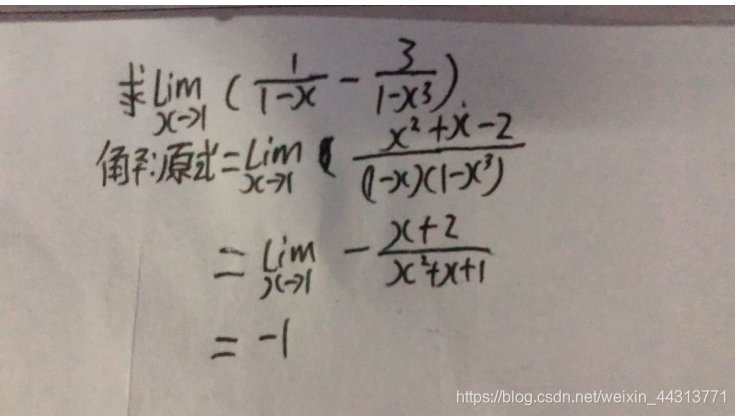 求 Lim x→1 ( 1/(1-x) - 3/(1-x³) )
解:原式 = Lim x→1 (x²+x-2)/((1-x)(1-x³))
= Lim x→1 - (x+2)/(x²+x+1)
= -1
https://blog.csdn.net/weixin_44313771